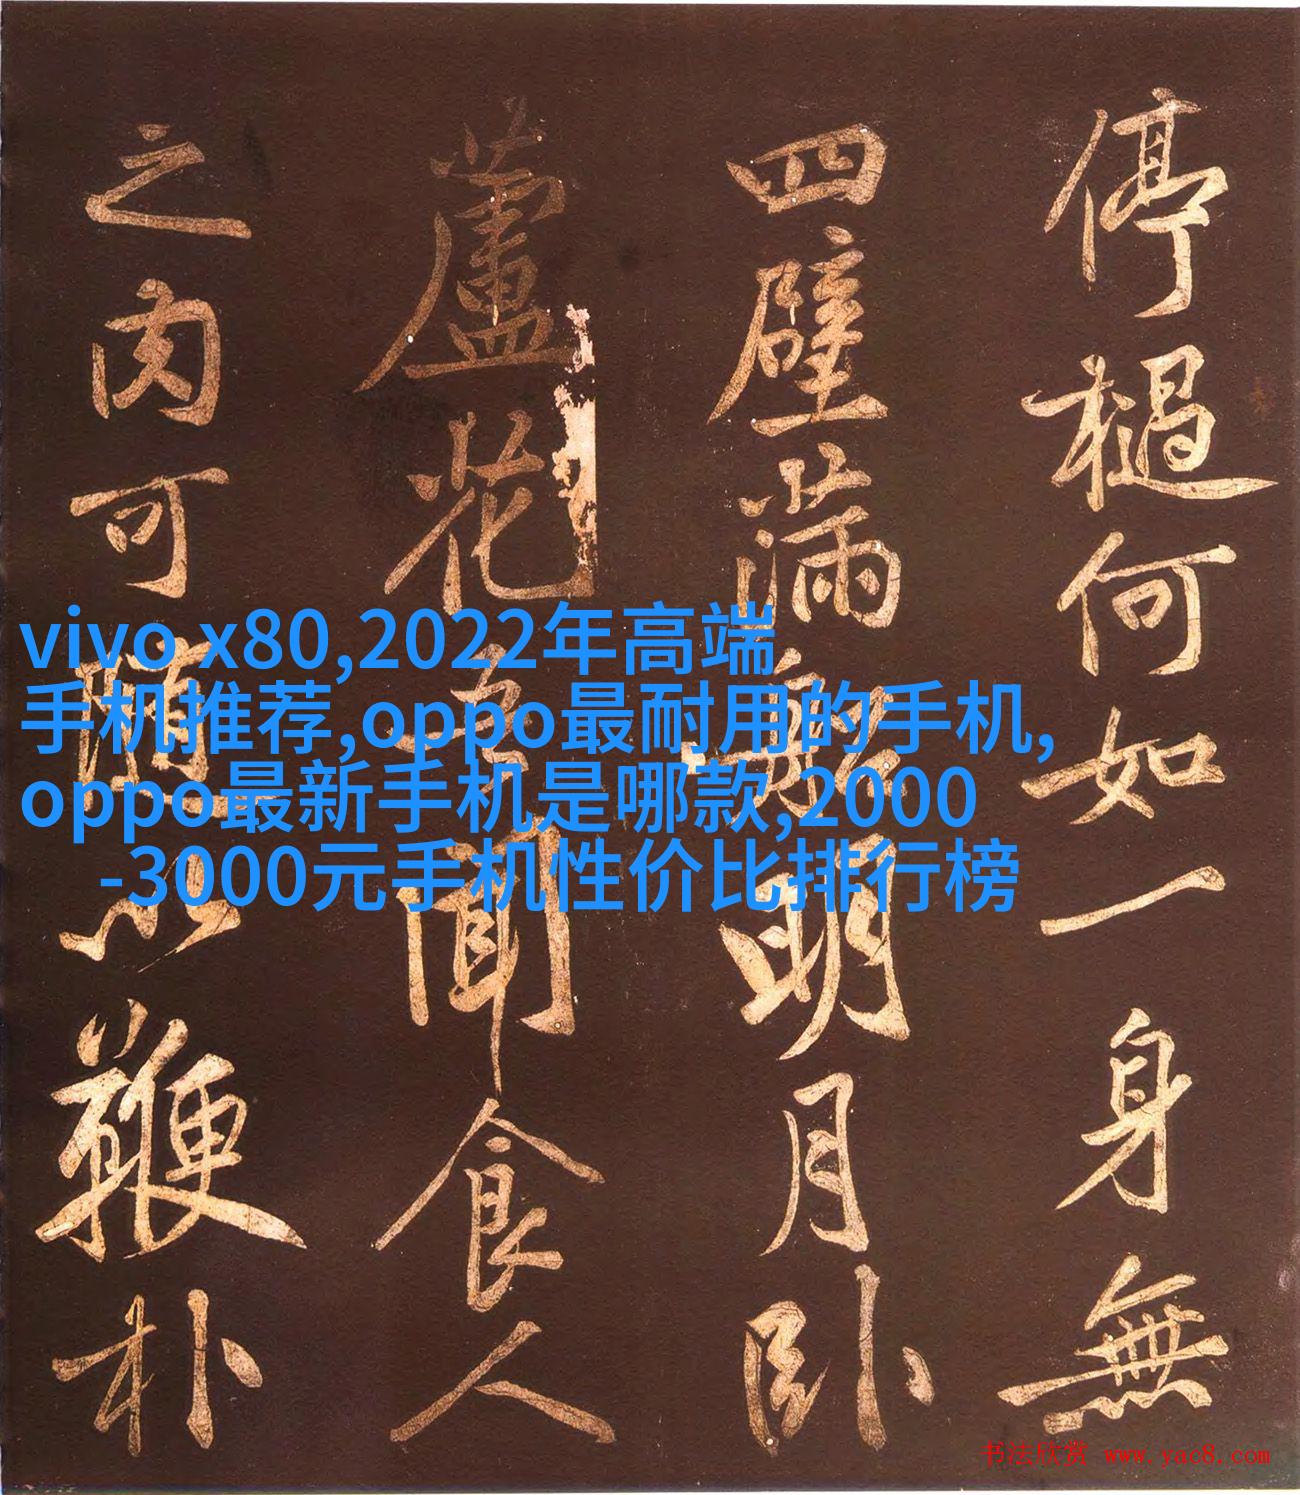 停檛何如一身無
四壁滿船明月臥
蘆花吾聞食人
之肉可隨以鞭朴
vivo x80,2022年高端
手机推荐,oppo最耐用的手机,
oppo最新手机是哪款,2000
-3000元手机性价比排行榜
书法欣赏 www.yac8.com